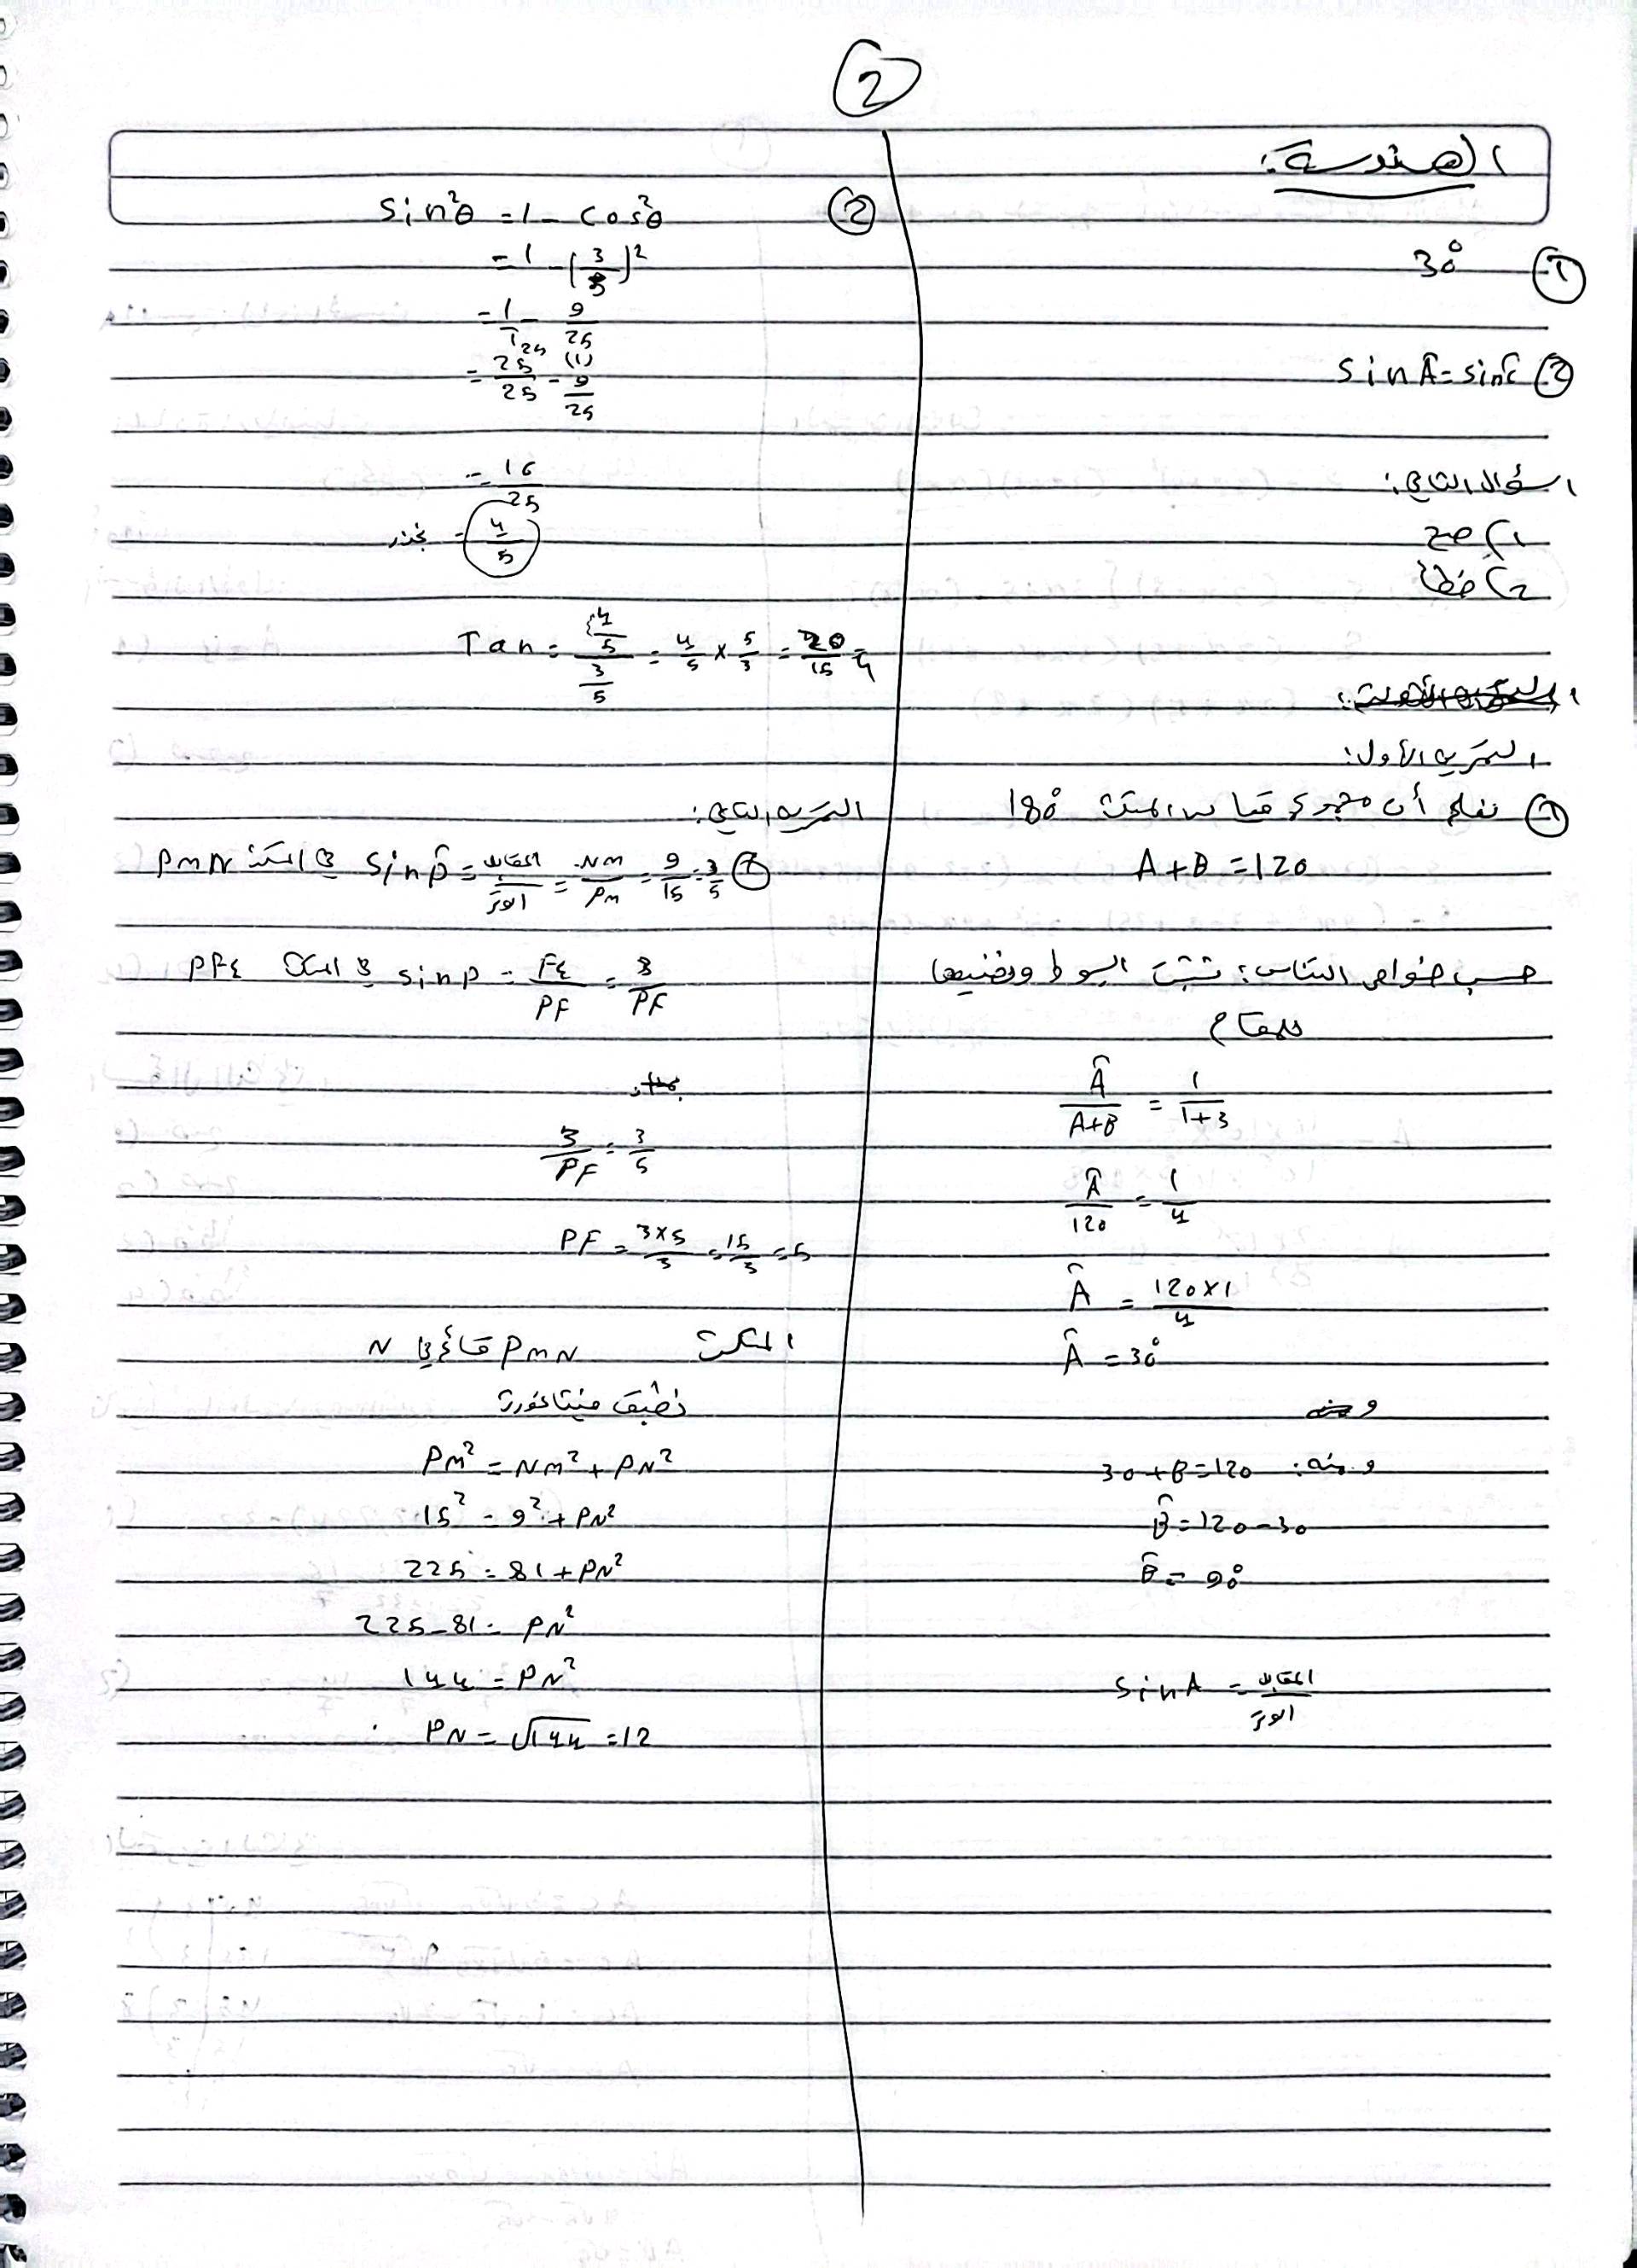 2
الهندسة:
① 30°
② sin Â = sin Ĉ
السؤال الثاني:
1) صح
2) خطأ
التمرين الأول:
① نعلم أن مجموع قياس المثلث 180°
A+B = 120
حسب خواص التناسب: نثبت البسوط ونضيفها
للمقام
Â/(A+B) = 1/(1+3)
Â/120 = 1/4
Â = (120×1)/4
Â = 30°
ومنه: 30+B=120
B̂ = 120-30
B̂ = 90°
sin A = المقابل/الوتر
② sin²θ = 1 - cos²θ
= 1 - (3/5)²
= 1/1 - 9/25
= 25/25 - 9/25
= 16/25
نجذر = 4/5
Tan = (4/5)/(3/5) = 4/5 × 5/3 = 20/15 =
التمرين الثاني:
① sin P̂ = المقابل/الوتر = NM/PM = 9/15 = 3/5 في المثلث PMN
sin P = FE/PF = 3/PF في المثلث PFE
3/PF = 3/5
PF = (3×5)/3 = 15/3 = 5
المثلث PMN قائم في N
نطبق فيثاغورث
PM² = NM² + PN²
15² = 9² + PN²
225 = 81 + PN²
225-81 = PN²
144 = PN²
PN = √144 = 12